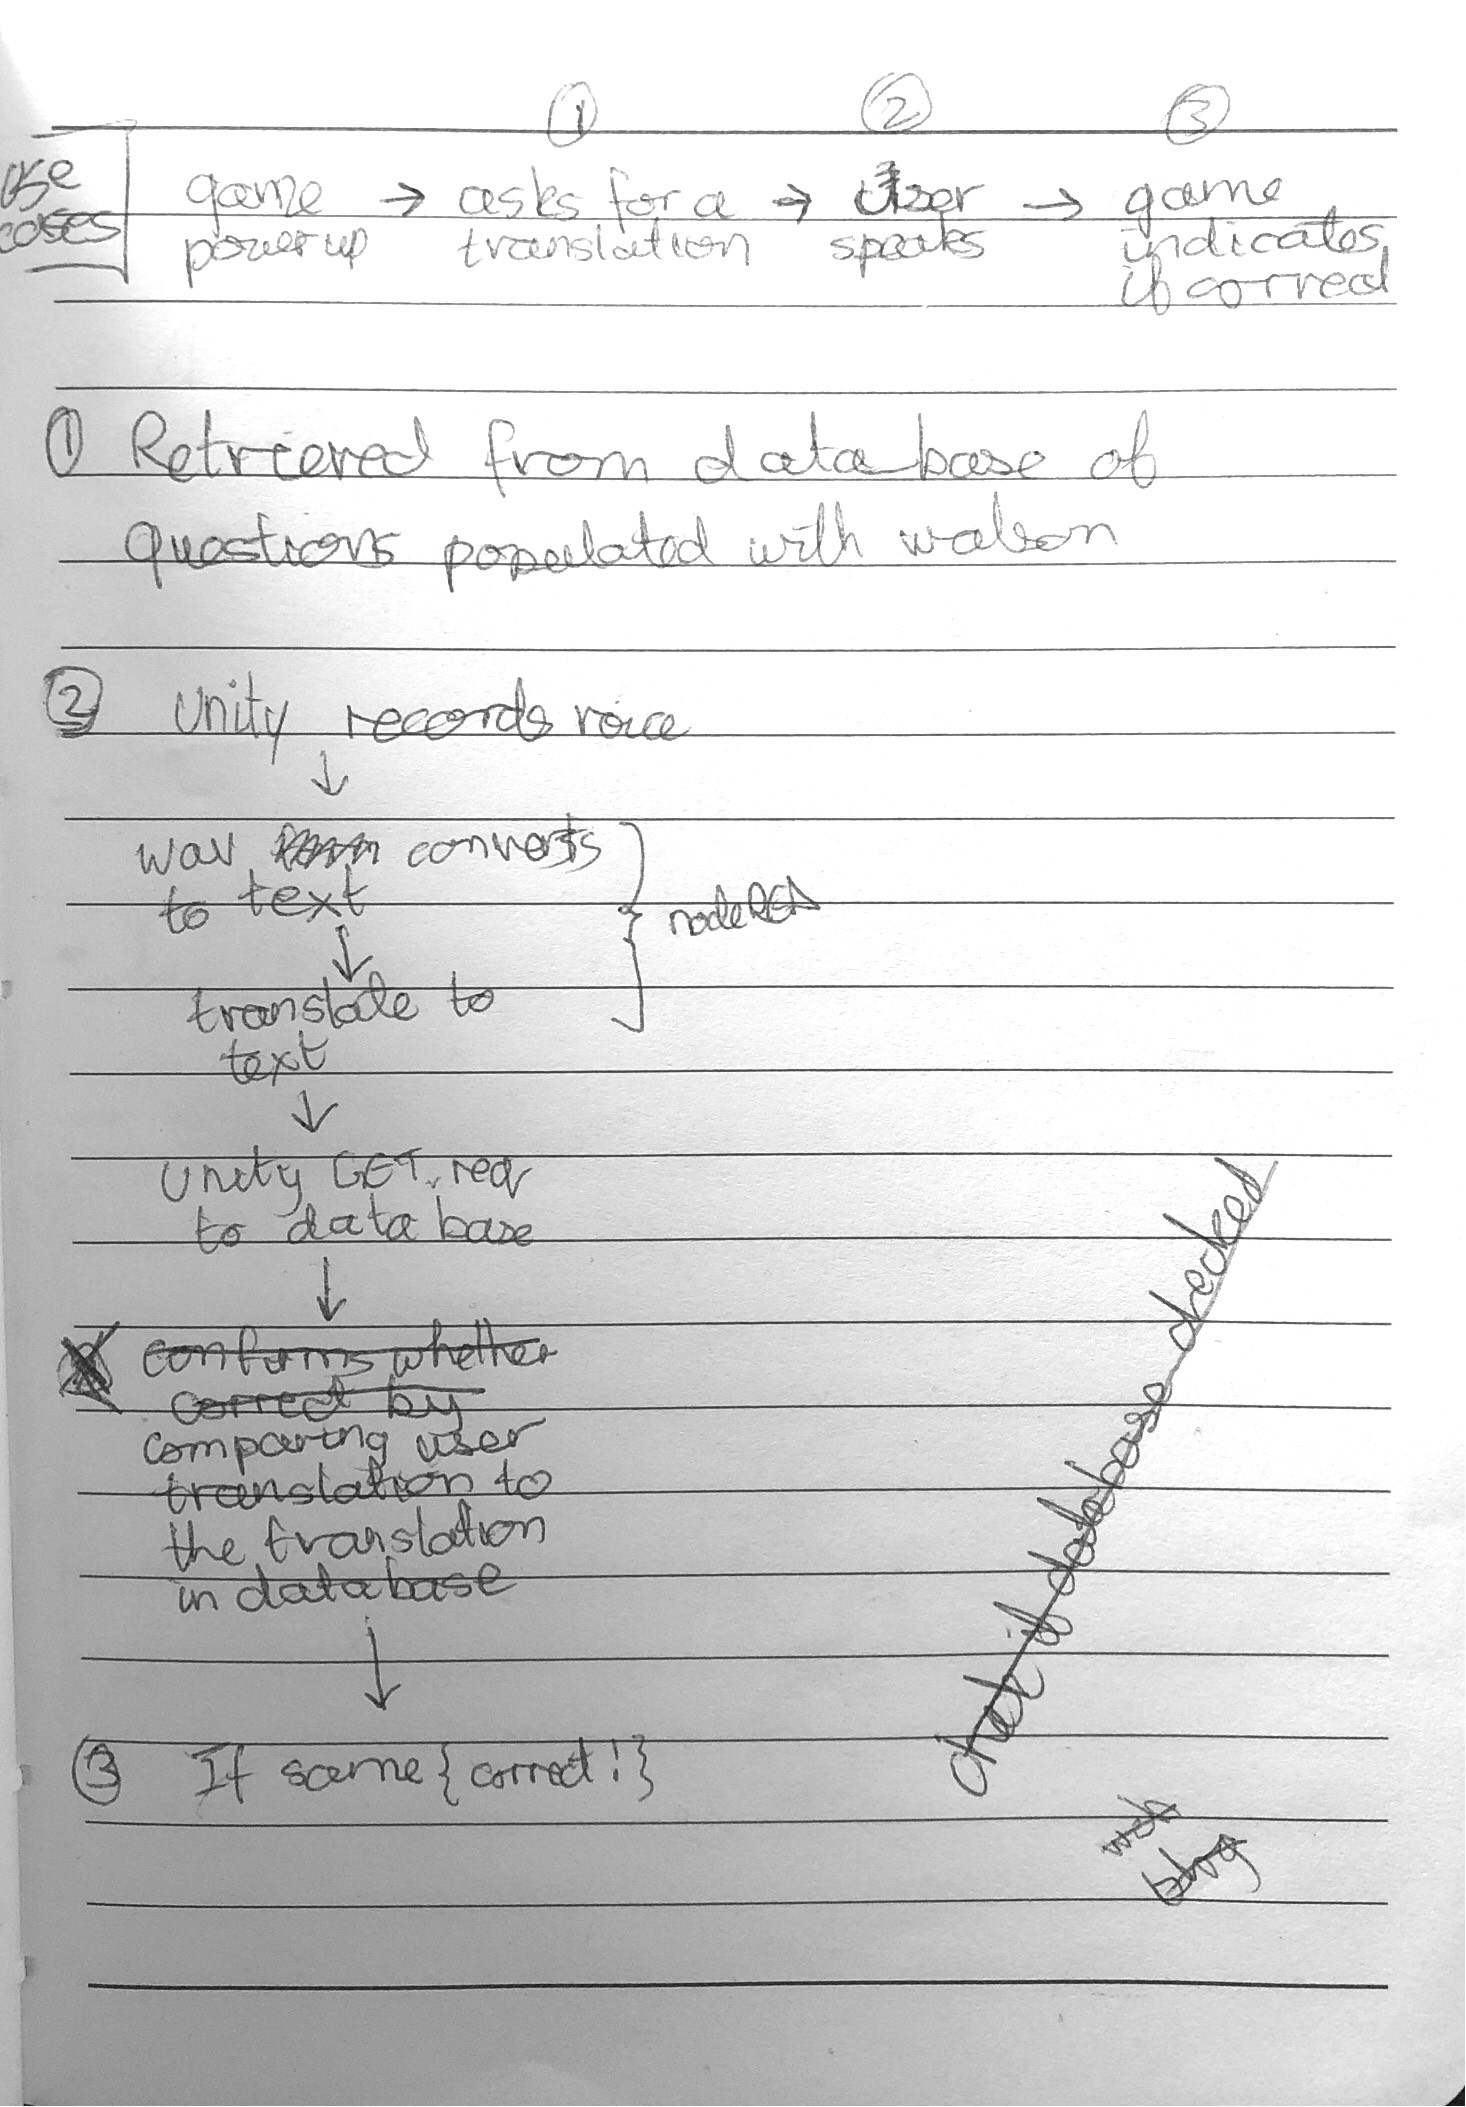 ① ② ③
use
cases
game → asks for a → user → game
powerup translation speaks indicates
if correct
① Retrieved from database of
questions populated with watson
② Unity records voice
↓
wav converts
to text
nodeRED
↓
translate to
text
↓
Unity GET req
to database
↓
confirms whether
correct by
comparing user
translation to
the translation
in database
↓
③ If same { correct! }
check if database checked
blog